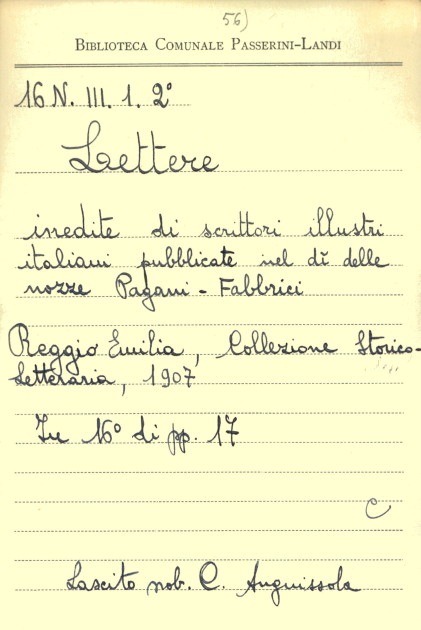 56)
BIBLIOTECA COMUNALE PASSERINI-LANDI
16 N. III. 1. 2°
Lettere
inedite di scrittori illustri
italiani pubblicate nel dì delle
nozze Pagani - Fabbrici
Reggio Emilia, Collezione Storico-
Letteraria, 1907
In 16° di pp. 17
C
Lascito nob. C. Anguissola